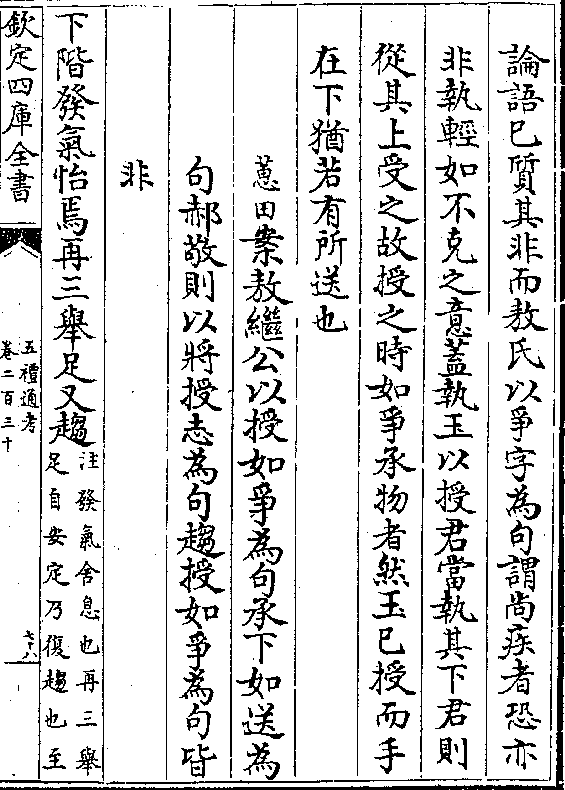 論語已質其非而敖氏以爭字為句謂尚疾者恐亦
非執輕如不克之意蓋執玉以授君當執其下君則
從其上受之故授之時如爭承物者然玉已授而手
在下猶若有所送也
蕙田案敖繼公以授如爭為句承下如送為
句郝敬則以將授志為句趨授如爭為句皆
非
下階發氣怡焉再三舉足又趨
注發氣舍息也再三舉
足自安定乃復趨也至
欽定四庫全書
五禮通考
卷二百三十